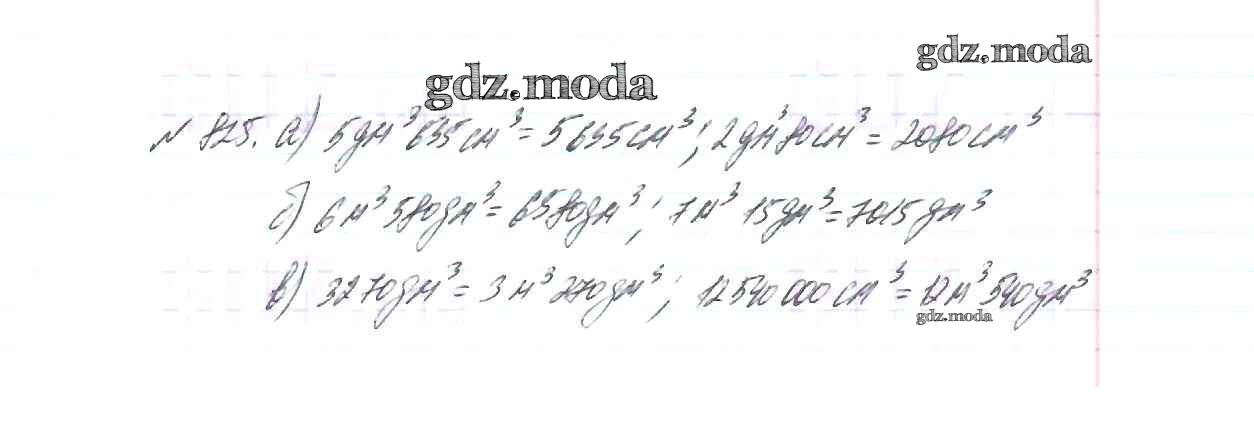 gdz.moda
gdz.moda
№ 825. а) 5 дм³ 635 см³ = 5635 см³; 2 дм³ 80 см³ = 2080 см³
б) 6 м³ 580 дм³ = 6580 дм³; 7 м³ 15 дм³ = 7015 дм³
в) 3270 дм³ = 3 м³ 270 дм³; 12540 000 см³ = 12 м³ 540 дм³
gdz.moda